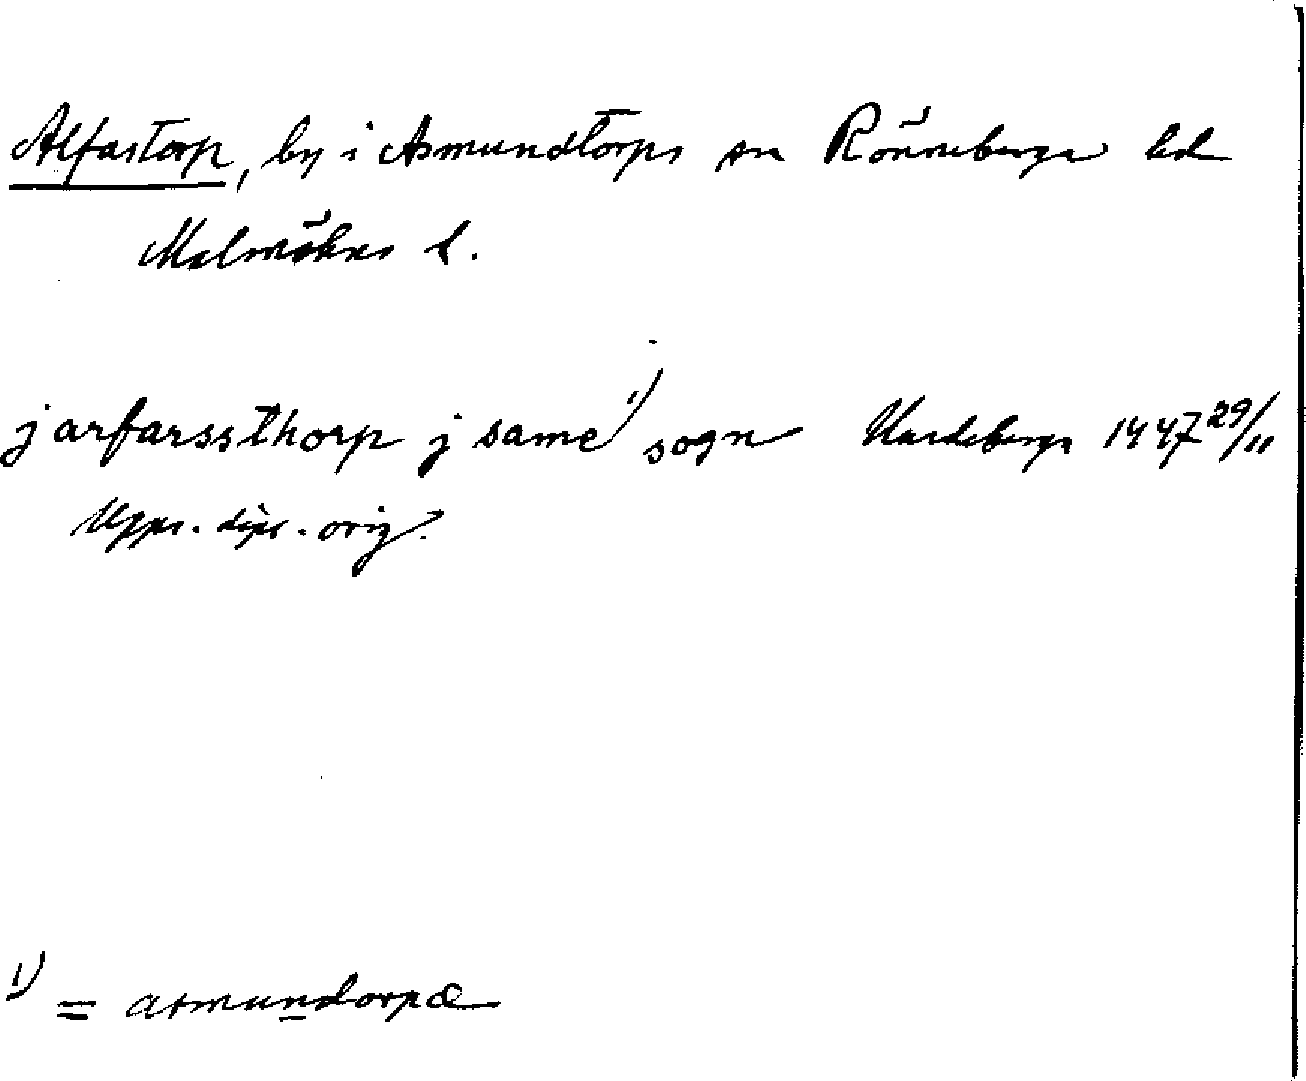 Alfastorp, by i Asmundtorps sn Rönneberga hd
Malmöhus l.
j arfarssthorp j same 1) sogn Vardeberga 1447 29/11
Upps. dipl. orig.
1) = asmundorpæ